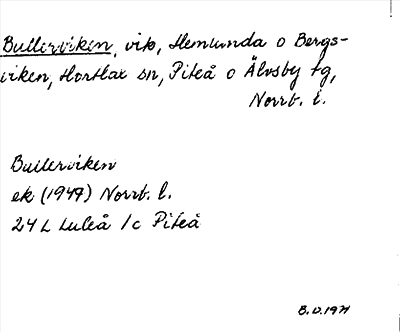 Bullerviken, vik, Hemlunda o Bergs-
viken, Hortlax sn, Piteå o Älvsby tg,
Norrb. l.
Bullerviken
ek (1947) Norrb. l.
24 L Luleå 1c Piteå
B.U. 1971